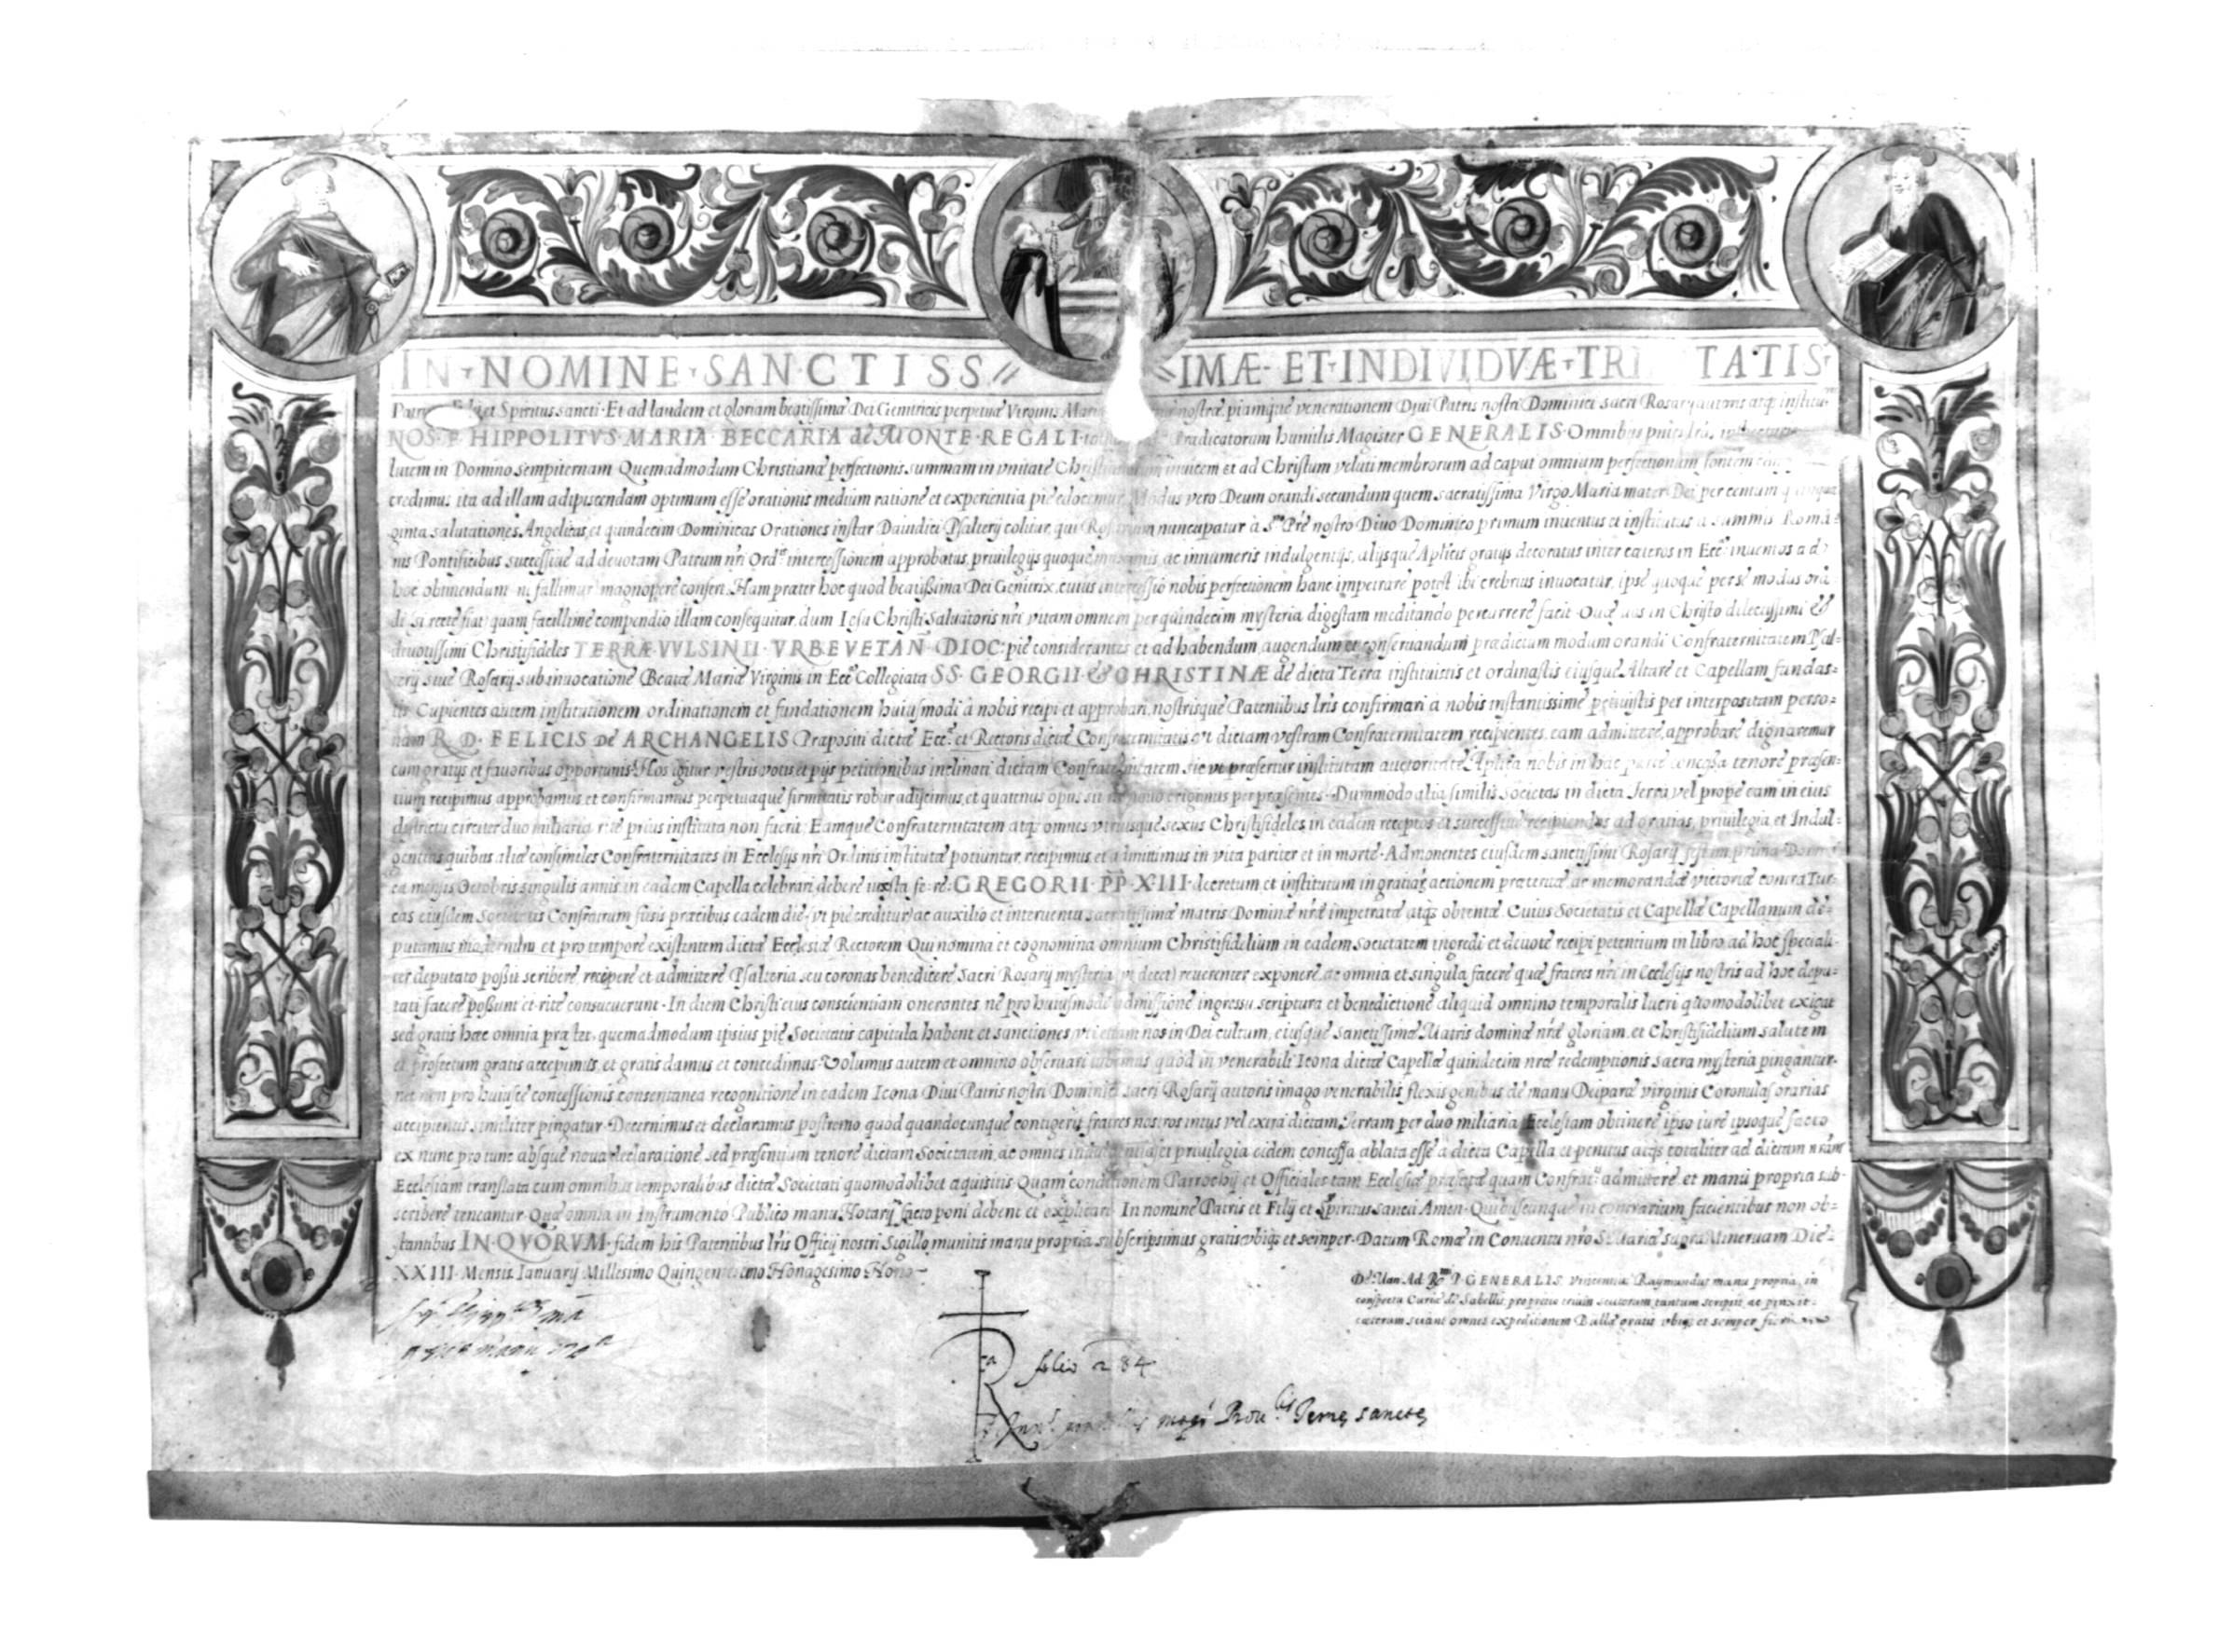 IN NOMINE SANCTISSIMÆ ET INDIVIDVÆ TRI TATIS
et Spiritus sancti Et ad laudem et gloriam beatissimæ Dei Genitricis perpetuæ Virginis nostræ, piamque venerationem Diui Patris nostri Dominici sacri Rosarij autoris atq; institu
NOS F HIPPOLITVS MARIA BECCARIA de MONTE REGALI Prædicatorum humilis Magister GENERALIS Omnibus
lutem in Domino sempiternam Quemadmodum Christianæ perfectionis summam in vnitate inuicem et ad Christum veluti membrorum ad caput omnium perfectionum fontem
credimus ita ad illam adipiscendam optimum esse orationis medium ratione et experientia pie edocemur Modus vero Deum orandi secundum quem sacratissima Virgo Maria mater Dei per centum
ginta salutationes Angelicas, et quindecim Dominicas Orationes instar Dauidici Psalterij colitur, qui Rosarium nuncupatur à S.mo Pre nostro Diuo Dominico primum inuentus et institutus a summis Roma=
nis Pontificibus successiue ad deuotam Patrum nri Ord.s intercessionem approbatus, priuilegijs quoque ac innumeris indulgentijs, alijsque Aplicis gratijs decoratus inter cæteros in Ecc.a inuentos ad
hoc obtinendum ni fallimur magnopere confert. Nam præter hoc quod beatissima Dei Genitrix, cuius intercessio nobis perfectionem hanc impetrare potest ibi crebrius inuocatur, ipse quoque per se modus orā
di si recte fiat quam facillime compendio illam consequitur dum Iesu Christi Saluatoris nri vitam omnem per quindecim mysteria digestam meditando percurrere facit. Quæ vos in Christo dilectissimi &
deuotissimi Christifideles TERRÆ VVLSINII VRBEVETAÑ DIOC: pie considerantes et ad habendum augendum et conseruandum prædictum modum orandi Confraternitatem Psal=
terij siue Rosarij sub inuocatione Beatæ Mariæ Virginis in Ecc.a Collegiata SS GEORGII & CHRISTINÆ de dicta Terra instituistis et ordinastis eiusque Altare et Capellam fundas=
tis Cupientes autem institutionem ordinationem et fundationem huiusmodi à nobis recipi et approbari, nostrisque Patentibus lris confirmari a nobis instantissime petiuistis per interpositam perso=
nam R. D. FELICIS De ARCHANGELIS Præpositi dictæ Ecc.æ et Rectoris dictæ Confraternitatis vt dictam vestram Confraternitatem recipientes eam admittere, approbare dignaremur
cum gratijs et fauoribus opportunis Nos igitur vestris votis et pijs petitionibus inclinati dictam Confraternitatem sic vt præfertur institutam auctoritate Aplica nobis in hac parte concessa tenore præsen=
tium recipimus approbamus et confirmamus perpetuæque firmitatis robur adijcimus, et quatenus opus sit de nouo erigimus per præsentes Dummodo alia similis Societas in dicta Terra vel prope eam in eius
districtu circiter duo miliaria rite prius instituta non fuerit Eamque Confraternitatem atq; omnes vtriusque sexus Christifideles in eadem receptos et successiue recipiendos ad gratias, priuilegia, et Indul=
gentias quibus aliæ consimiles Confraternitates in Ecclesijs nri Ordinis institutæ potiuntur, recipimus et admittimus in vita pariter et in morte Admonentes eiusdem sanctissimi Rosarij festum prima Domi
ca mensis Octobris singulis annis in eadem Capella celebrari debere iuxta fe: re: GREGORII PP XIII decretum et institutum in gratiar actionem præteritæ, ac memorandæ victoriæ contra Tur=
cas eiusdem Societatis Confratrum fusis precibus eadem die (vt pie creditur) ac auxilio et interuentu sacratissimæ matris Dominæ nræ impetratæ atq; obtentæ. Cuius Societatis et Capellæ Capellanum de=
putamus modernum et pro tempore existentem dictæ Ecclesiæ Rectorem Qui nomina et cognomina omnium Christifidelium in eadem Societatem ingredi et deuote recipi petentium in libro ad hoc speciali=
ter deputato possit scribere, recipere et admittere Psalteria, seu coronas benedicere, Sacri Rosarij mysteria (vt decet) reuerenter exponere, ac omnia et singula facere quæ fratres nri in Ecclesijs nostris ad hoc depu=
tati facere possunt et rite consueuerunt In diem Christi eius conscientiam onerantes, ne pro huiusmodi admissione ingressu, scriptura et benedictione aliquid omnino temporalis lucri quomodolibet exigat
sed gratis hæc omnia præstet, quemadmodum ipsius piæ Societatis capitula habent et sanctiones, vti etiam nos in Dei cultum, eiusque Sanctissimæ Matris dominæ nræ gloriam, et Christifidelium salutem
et profectum gratis accepimus, et gratis damus et concedimus Volumus autem et omnino obseruari iubemus quod in venerabili Icona dictæ Capellæ quindecim nræ redemptionis sacra mysteria pingantur
nec non pro huiusce concessionis consentanea recognitione in eadem Icona Diui Patris nostri Dominici sacri Rosarij autoris imago venerabilis flexis genibus de manu Deiparæ virginis Coronulas orarias
accipientis similiter pingatur Decernimus et declaramus postremo quod quandocunque contigerit fratres nostros intus vel extra dictam Terram per duo miliaria Ecclesiam obtinere ipso iure ipsoque facto
ex nunc pro tunc absque noua declaratione sed præsentium tenore dictam Societatem, ac omnes indulgentias et priuilegia eidem concessa ablata esse a dicta Capella et penitus atq; totaliter ad dictam nram
Ecclesiam translata cum omnibus temporalibus dictæ Societati quomodolibet aquisitis Quam conditionem Parrochij et Officiales tam Ecclesiæ præfatæ quam Confrat: admittere et manu propria sub=
scribere teneantur Quæ omnia in Instrumento Publico manu Notarij facto poni debent et explicari In nomine Patris et Filij et Spiritus sancti Amen Quibuscunque in contrarium facientibus non ob=
stantibus IN QVORVM fidem his Patentibus lris Officij nostri Sigillo munitis manu propria subscripsimus gratis vbiq; et semper Datum Romæ in Conuentu nro S. Mariæ supra Mineruam Die
XXIII Mensis Ianuarij Millesimo Quingentesimo Nonagesimo Nono
De Man. Ad R.mi P. GENERALIS Vincentius Raymundus manu propria in
conspectu Curiæ de Sabellis pro precio trium scutorum tantum scripsit ac pinxit
cæterum sciant omnes expeditionem Bullæ gratis vbiq; et semper fieri
folio 284
mag.r Prou.lis Terre sancte